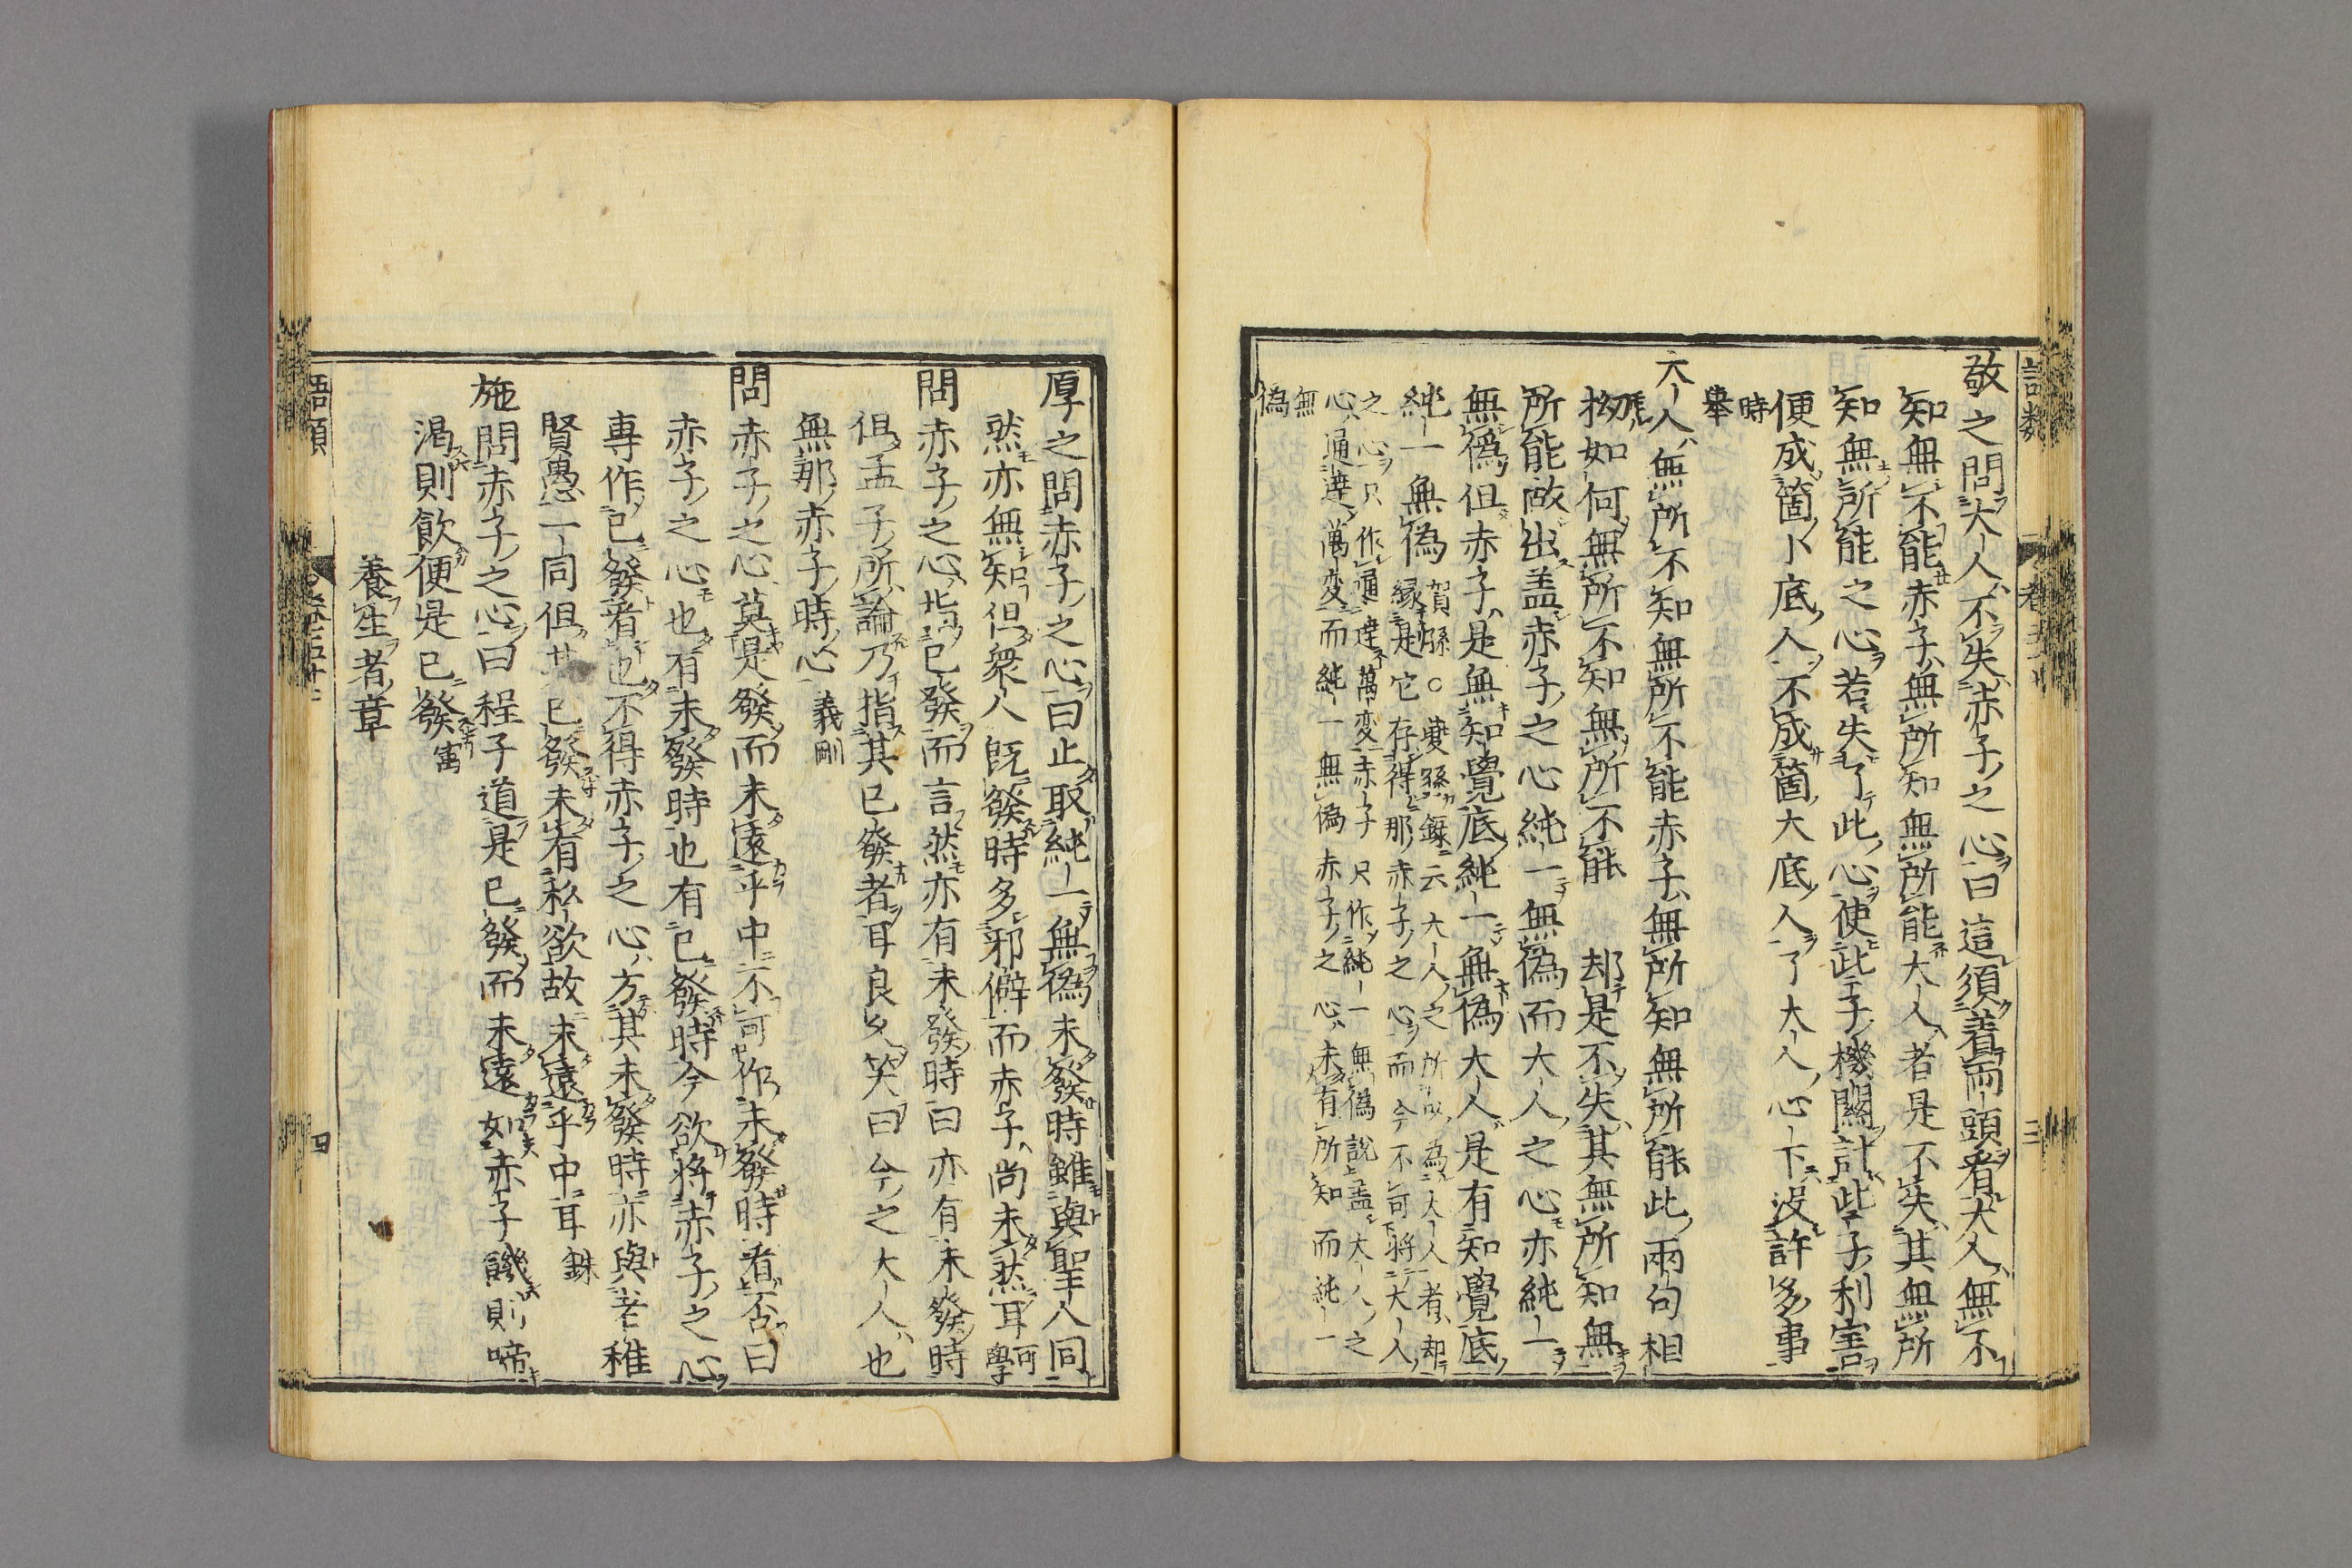 敬之問大人不失赤子之心曰這須着兩頭看大人無不
知無不能赤子無所知無所能大人者是不失其無所
知無所能之心若失了此心使此子機關計此子利害
便成箇小底人不成箇大底人了大人心下没許多事
時舉
大人無所不知無所不能赤子無所知無所能此兩句相
拗如何無所不知無所不能却是不失其無所知無
所能做出盖赤子之心純一無偽而大人之心亦純一
無僞但赤子是無知覺底純一無偽大人是有知覺底
純一無偽賀孫○夔孫録云大人之所以為大人者却
縁是它存得那赤子之心而今不可將大人
之心只作通達萬変赤子只作純一無偽說盖大人之
心通達萬変而純一無偽赤子之心未有所知而純一
無偽
厚之問赤子之心曰止取純一無偽未發時雖與聖人同
然亦無知但衆人既發時多邪僻而赤子尚未然耳可學
問赤子之心指已發而言然亦有未發時曰亦有未發時
但孟子所論乃指其已發者耳良久笑曰今之大人也
無那赤子時心義剛
問赤子之心莫是發而未遠乎中不可作未發時看否曰
赤子之心也有未發時也有已發時今欲将赤子之心
專作已發看也不得赤子之心方其未發時亦與老稚
賢愚一同但其已發未有私欲故未遠乎中耳銖
施問赤子之心曰程子道是已發而未遠如赤子饑則啼
渴則飲便是已發㝢
養生者章